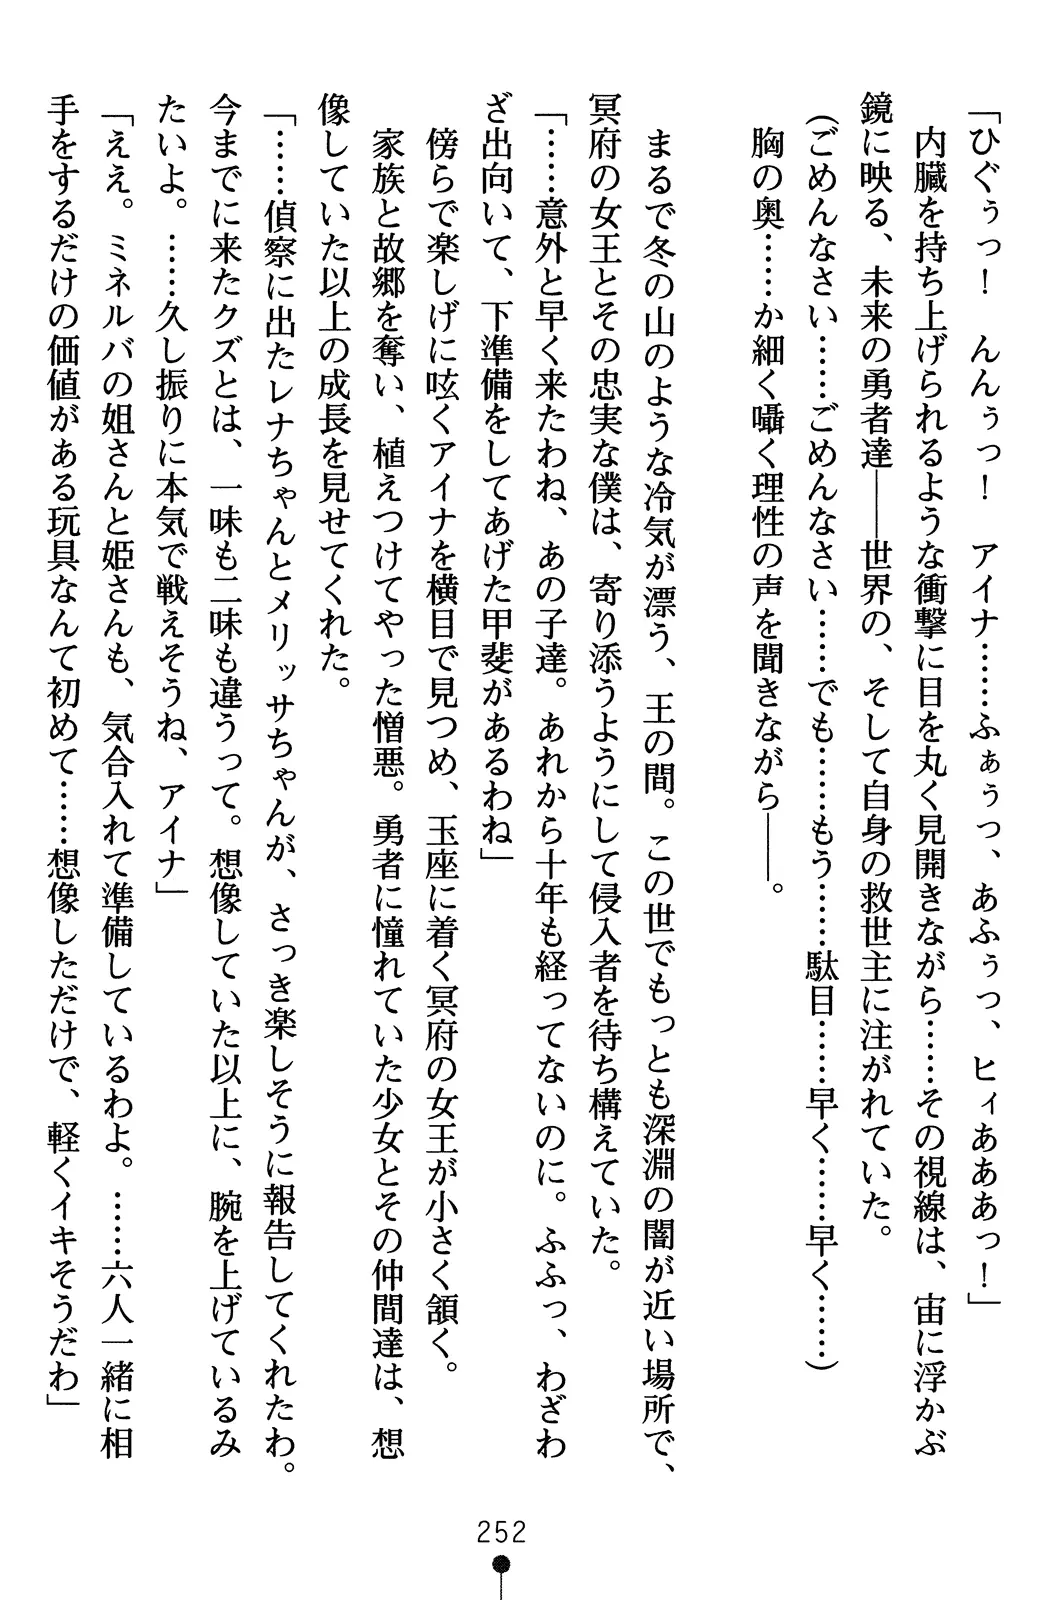 「ひぐぅっ！　んんぅっ！　アイナ……ふぁぅっ、あふぅっ、ヒィあああっ！」
　内臓を持ち上げられるような衝撃に目を丸く見開きながら……その視線は、宙に浮かぶ
鏡に映る、未来の勇者達――世界の、そして自身の救世主に注がれていた。
（ごめんなさい……ごめんなさい……でも……もう……駄目……早く……早く……）
　胸の奥……か細く囁く理性の声を聞きながら――。
　まるで冬の山のような冷気が漂う、王の間。この世でもっとも深淵の闇が近い場所で、
冥府の女王とその忠実な僕は、寄り添うようにして侵入者を待ち構えていた。
「……意外と早く来たわね、あの子達。あれから十年も経ってないのに。ふふっ、わざわ
ざ出向いて、下準備をしてあげた甲斐があるわね」
　傍らで楽しげに呟くアイナを横目で見つめ、玉座に着く冥府の女王が小さく頷く。
　家族と故郷を奪い、植えつけてやった憎悪。勇者に憧れていた少女とその仲間達は、想
像していた以上の成長を見せてくれた。
「……偵察に出たレナちゃんとメリッサちゃんが、さっき楽しそうに報告してくれたわ。
今までに来たクズとは、一味も二味も違うって。想像していた以上に、腕を上げているみ
たいよ。……久し振りに本気で戦えそうね、アイナ」
「ええ。ミネルバの姐さんと姫さんも、気合入れて準備しているわよ。……六人一緒に相
手をするだけの価値がある玩具なんて初めて……想像しただけで、軽くイキそうだわ」
252